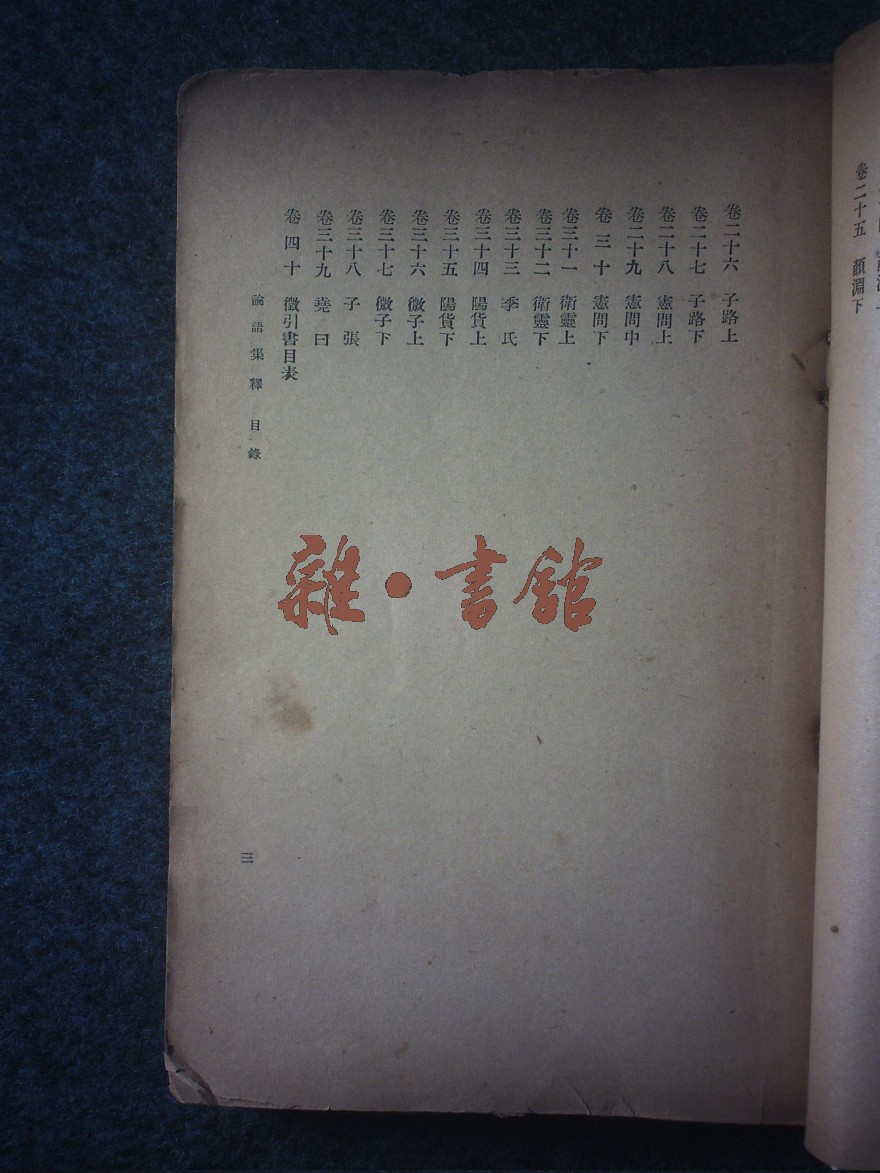 卷二十五　顏淵下
卷二十六　子路上
卷二十七　子路下
卷二十八　憲問上
卷二十九　憲問中
卷三十　憲問下
卷三十一　衛靈上
卷三十二　衛靈下
卷三十三　季氏
卷三十四　陽貨上
卷三十五　陽貨下
卷三十六　微子上
卷三十七　微子下
卷三十八　子張
卷三十九　堯曰
卷四十　徵引書目表
論語集釋　目錄
三
雜·書館